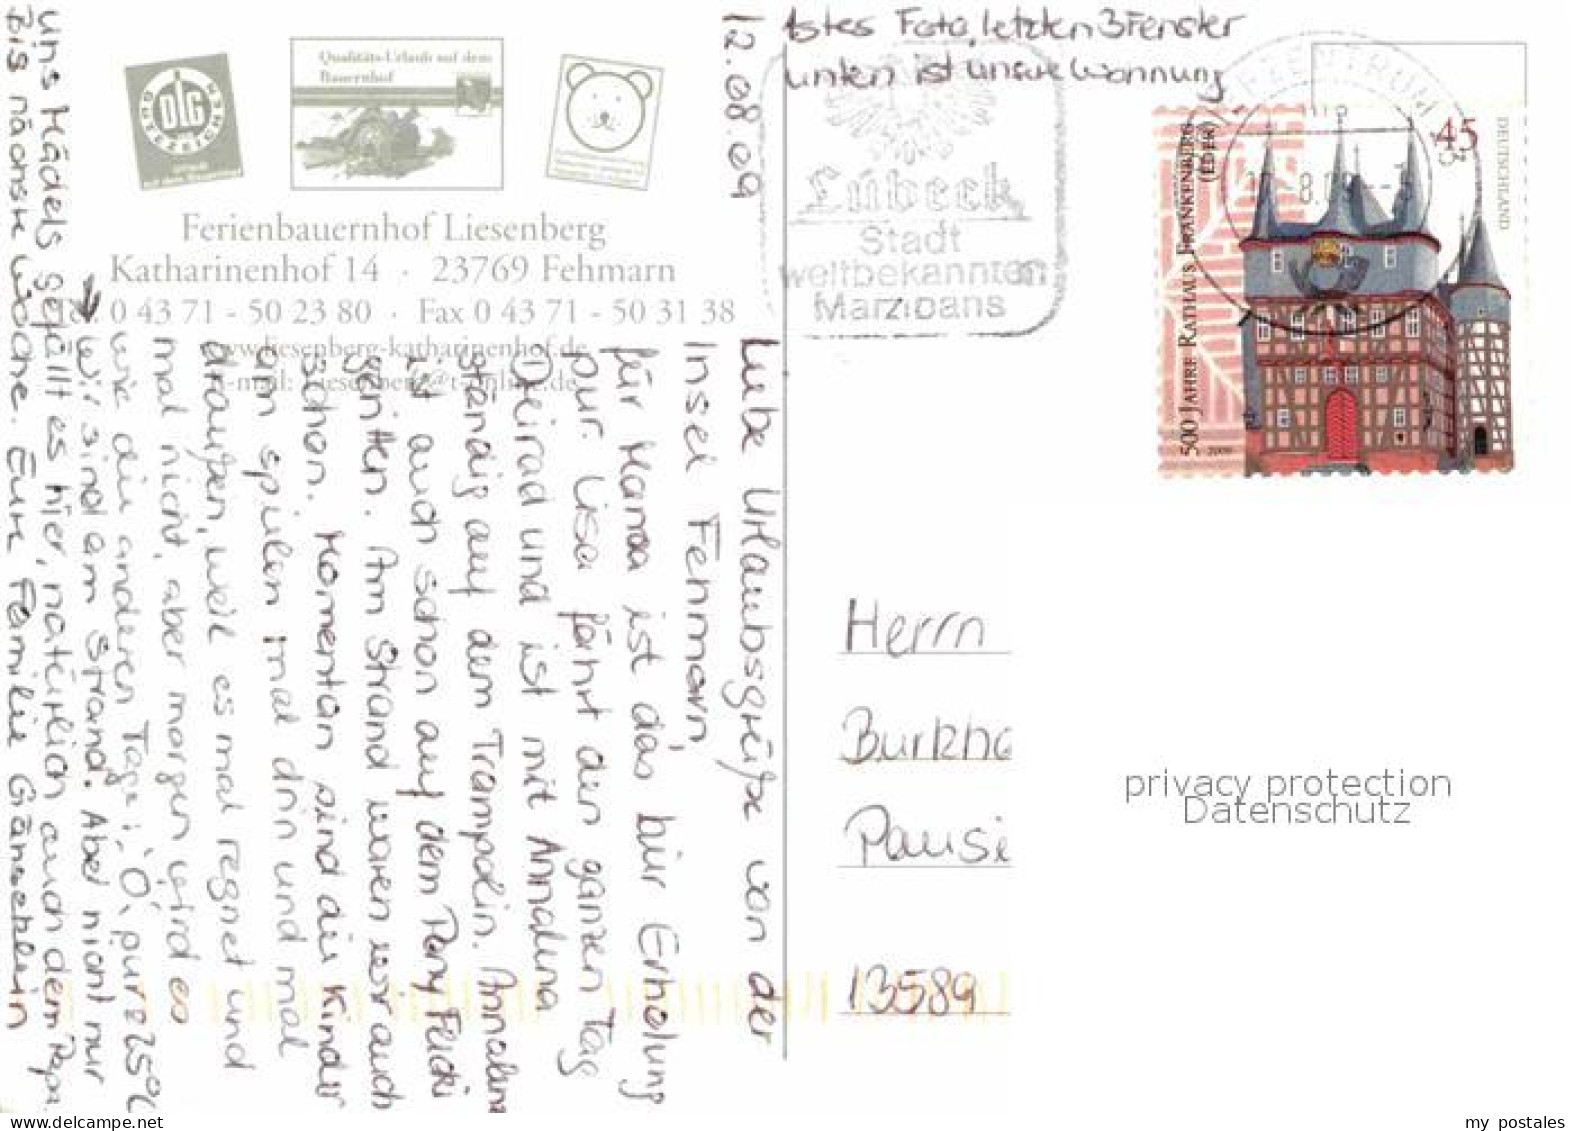 12.08.09
1stes Foto, letzten 3 Fenster
unten ist unsere Wohnung
DLG
GÜTEZEICHEN
Qualitäts-Urlaub auf dem
Bauernhof
Ferienbauernhof Liesenberg
Katharinenhof 14 · 23769 Fehmarn
Tel. 0 43 71 - 50 23 80 · Fax 0 43 71 - 50 31 38
www.liesenberg-katharinenhof.de
e-mail: Liesenberg@t-online.de
Lübeck
Stadt
weltbekannten
Marzipans
BRIEFZENTRUM
23
DEUTSCHLAND
45
500 JAHRE RATHAUS FRANKENBERG
(EDER)
2009
Liebe Urlaubsgrüße von der
Insel Fehmarn,
für Mama ist das hier Erholung
pur. Lisa fährt den ganzen Tag
Dreirad und ist mit Annalena
ständig auf dem Trampolin. Annalena
ist auch schon auf dem Pony Felicki
geritten. Am Strand waren wir auch
schon. Momentan sind die Kinder
am spielen mal drin und mal
draußen, weil es mal regnet und
mal nicht, aber morgen wird es
wie die anderen Tage
wir sind am Strand. Aber nicht nur
uns Mädels gefällt es hier, natürlich auch dem Papa.
Bis nächste Woche. Eure Familie Gänseklein
Herrn
Burkha
Pausi
13589
privacy protection
Datenschutz
www.delcampe.net
my_postales